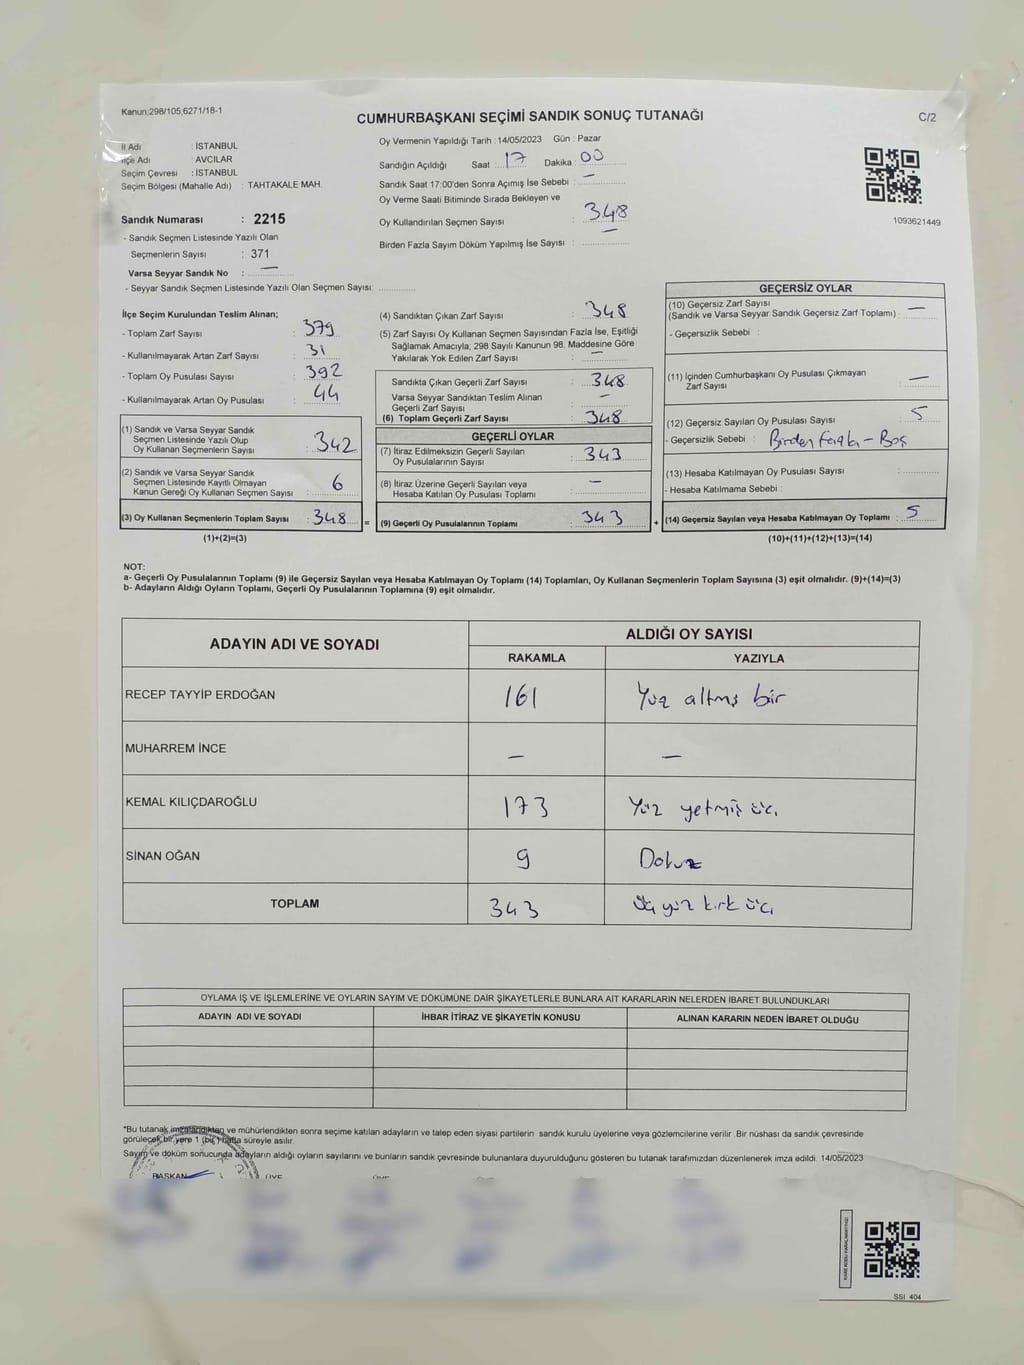 Kanun;298/105,6271/18-1
CUMHURBAŞKANI SEÇİMİ SANDIK SONUÇ TUTANAĞI
C/2
İl Adı : İSTANBUL
İlçe Adı : AVCILAR
Seçim Çevresi : İSTANBUL
Seçim Bölgesi (Mahalle Adı) : TAHTAKALE MAH.
Sandık Numarası : 2215
- Sandık Seçmen Listesinde Yazılı Olan
Seçmenlerin Sayısı : 371
Varsa Seyyar Sandık No : —
- Seyyar Sandık Seçmen Listesinde Yazılı Olan Seçmen Sayısı:
Oy Vermenin Yapıldığı Tarih : 14/05/2023 Gün : Pazar
Sandığın Açıldığı Saat : 17 Dakika : 00
Sandık Saat 17:00'den Sonra Açımış İse Sebebi : —
Oy Verme Saati Bitiminde Sırada Bekleyen ve
Oy Kullandırılan Seçmen Sayısı : 348
Birden Fazla Sayım Döküm Yapılmış İse Sayısı : —
1093621449
İlçe Seçim Kurulundan Teslim Alınan;
- Toplam Zarf Sayısı : 379
- Kullanılmayarak Artan Zarf Sayısı : 31
- Toplam Oy Pusulası Sayısı : 392
- Kullanılmayarak Artan Oy Pusulası : 44
(1) Sandık ve Varsa Seyyar Sandık
Seçmen Listesinde Yazılı Olup
Oy Kullanan Seçmenlerin Sayısı : 342
(2) Sandık ve Varsa Seyyar Sandık
Seçmen Listesinde Kayıtlı Olmayan
Kanun Gereği Oy Kullanan Seçmen Sayısı : 6
(3) Oy Kullanan Seçmenlerin Toplam Sayısı : 348
(1)+(2)=(3)
=
(4) Sandıktan Çıkan Zarf Sayısı : 348
(5) Zarf Sayısı Oy Kullanan Seçmen Sayısından Fazla İse, Eşitliği
Sağlamak Amacıyla; 298 Sayılı Kanunun 98. Maddesine Göre
Yakılarak Yok Edilen Zarf Sayısı : —
Sandıkta Çıkan Geçerli Zarf Sayısı : 348
Varsa Seyyar Sandıktan Teslim Alınan
Geçerli Zarf Sayısı : —
(6) Toplam Geçerli Zarf Sayısı : 348
GEÇERLİ OYLAR
(7) İtiraz Edilmeksizin Geçerli Sayılan
Oy Pusulalarının Sayısı : 343
(8) İtiraz Üzerine Geçerli Sayılan veya
Hesaba Katılan Oy Pusulası Toplamı : —
(9) Geçerli Oy Pusulalarının Toplamı : 343
+
GEÇERSİZ OYLAR
(10) Geçersiz Zarf Sayısı
(Sandık ve Varsa Seyyar Sandık Geçersiz Zarf Toplamı) : —
- Geçersizlik Sebebi :
(11) İçinden Cumhurbaşkanı Oy Pusulası Çıkmayan
Zarf Sayısı : —
(12) Geçersiz Sayılan Oy Pusulası Sayısı : 5
- Geçersizlik Sebebi : Birden Fazla - Boş
(13) Hesaba Katılmayan Oy Pusulası Sayısı :
- Hesaba Katılmama Sebebi :
(14) Geçersiz Sayılan veya Hesaba Katılmayan Oy Toplamı : 5
(10)+(11)+(12)+(13)=(14)
NOT:
a- Geçerli Oy Pusulalarının Toplamı (9) ile Geçersiz Sayılan veya Hesaba Katılmayan Oy Toplamı (14) Toplamları, Oy Kullanan Seçmenlerin Toplam Sayısına (3) eşit olmalıdır. (9)+(14)=(3)
b- Adayların Aldığı Oyların Toplamı, Geçerli Oy Pusulalarının Toplamına (9) eşit olmalıdır.
ADAYIN ADI VE SOYADI
ALDIĞI OY SAYISI
RAKAMLA YAZIYLA
RECEP TAYYİP ERDOĞAN 161 Yüz altmış bir
MUHARREM İNCE — —
KEMAL KILIÇDAROĞLU 173 Yüz yetmiş üç
SİNAN OĞAN 9 Dokuz
TOPLAM 343 Üç yüz kırk üç
OYLAMA İŞ VE İŞLEMLERİNE VE OYLARIN SAYIM VE DÖKÜMÜNE DAİR ŞİKAYETLERLE BUNLARA AİT KARARLARIN NELERDEN İBARET BULUNDUKLARI
ADAYIN ADI VE SOYADI İHBAR İTİRAZ VE ŞİKAYETİN KONUSU ALINAN KARARIN NEDEN İBARET OLDUĞU
*Bu tutanak imzalandıktan ve mühürlendikten sonra seçime katılan adayların ve talep eden siyasi partilerin sandık kurulu üyelerine veya gözlemcilerine verilir .Bir nüshası da sandık çevresinde
görülecek bir yere 1 (bir) hafta süreyle asılır.
Sayım ve döküm sonucunda adayların aldığı oyların sayılarını ve bunların sandık çevresinde bulunanlara duyurulduğunu gösteren bu tutanak tarafımızdan düzenlenerek imza edildi. 14/05/2023
BAŞKAN ÜYE ÜYE
SSI 404